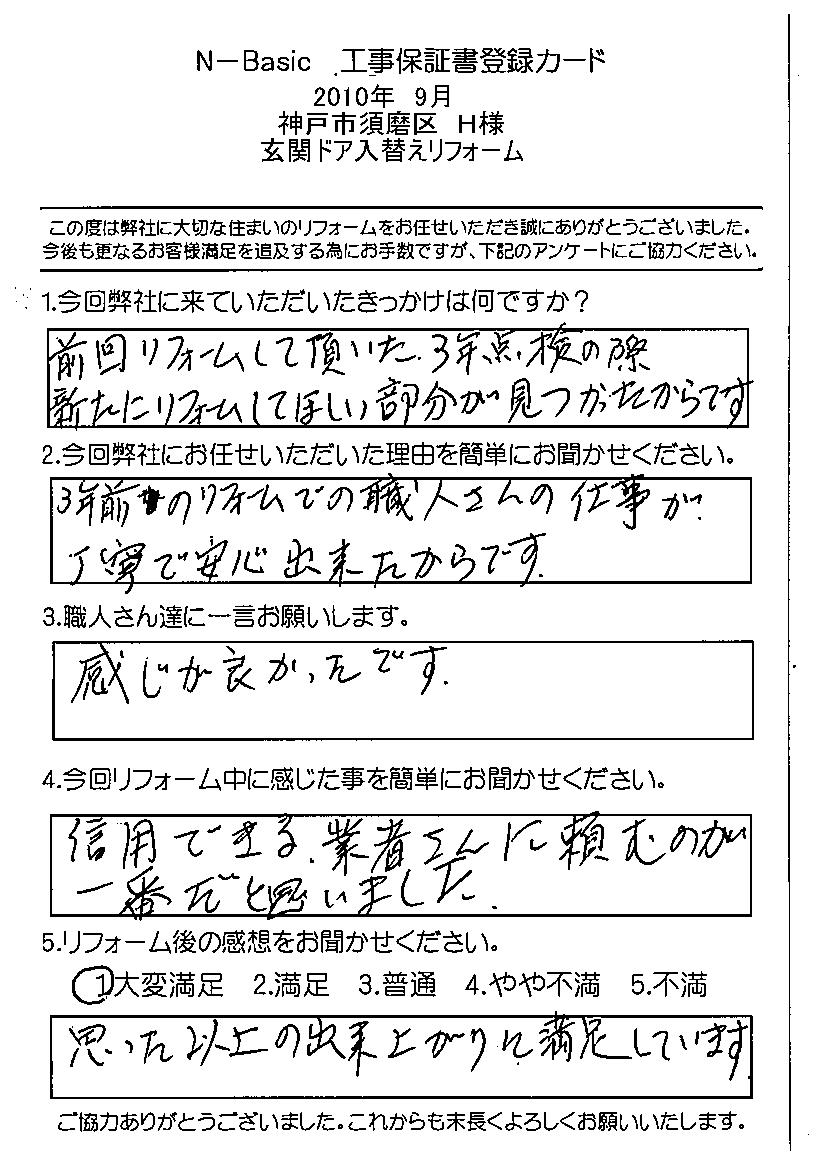 N－Basic 工事保証書登録カード
2010年 9月
神戸市須磨区 H様
玄関ドア入替えリフォーム
この度は弊社に大切な住まいのリフォームをお任せいただき誠にありがとうございました。
今後も更なるお客様満足を追及する為にお手数ですが、下記のアンケートにご協力ください。
1.今回弊社に来ていただいたきっかけは何ですか？
前回リフォームして頂いた、3年点検の際
新たにリフォームしてほしい部分が見つかったからです
2.今回弊社にお任せいただいた理由を簡単にお聞かせください。
3年前のリフォームでの職人さんの仕事が
丁寧で安心出来たからです.
3.職人さん達に一言お願いします。
感じが良かったです.
4.今回リフォーム中に感じた事を簡単にお聞かせください。
信用できる、業者さんに頼むのが
一番だと思いました.
5.リフォーム後の感想をお聞かせください。
1大変満足 2.満足 3.普通 4.やや不満 5.不満
思った以上の出来上がりに満足しています
ご協力ありがとうございました。これからも末長くよろしくお願いいたします。